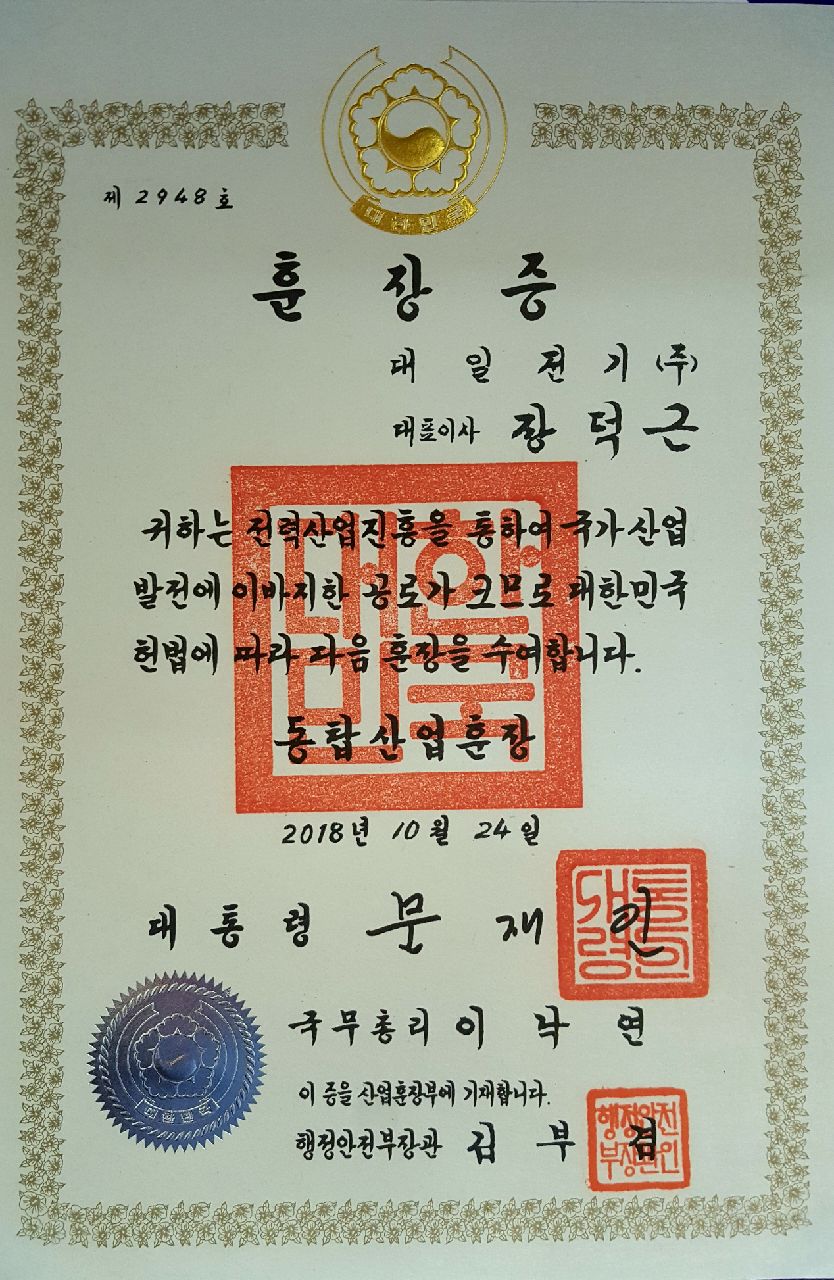 대한민국
제 2948 호
훈 장 증
대 일 전 기 (주)
대표이사 장 덕 근
귀하는 전력산업진흥을 통하여 국가산업
발전에 이바지한 공로가 크므로 대한민국
헌법에 따라 다음 훈장을 수여합니다.
동탑산업훈장
대한민국
2018년 10월 24일
대 통 령 문 재 인
대통령의인
국무총리 이 낙 연
대한민국
이 증을 산업훈장부에 기재합니다.
행정안전부장관 김 부 겸
행정안전
부장관인